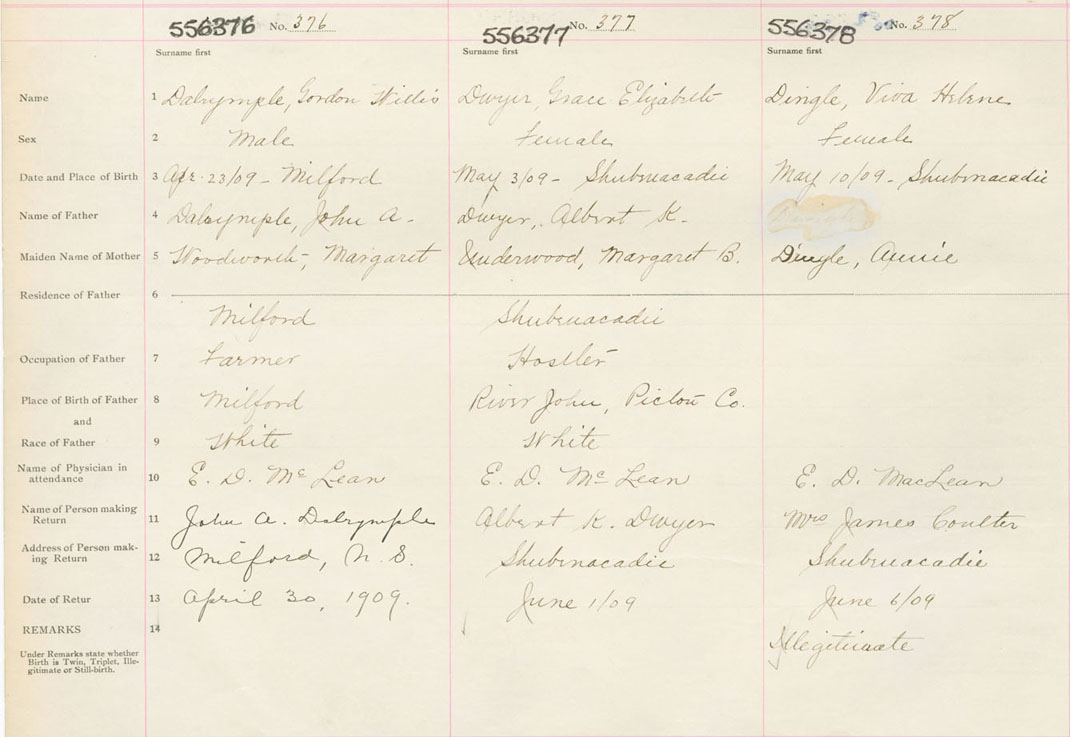 556376 No. 376 556377 No. 377 556378 No. 378
Surname first Surname first Surname first
Name 1 Dalrymple, Gordon Willis Dwyer, Grace Elizabeth Dingle, Viva Helene
Sex 2 Male Female Female
Date and Place of Birth 3 Apr. 23/09 - Milford May 3/09 - Shubenacadie May 10/09 - Shubenacadie
Name of Father 4 Dalrymple, John A. Dwyer, Albert K.
Maiden Name of Mother 5 Woodworth, Margaret Underwood, Margaret B. Dingle, Annie
Residence of Father 6
Milford Shubenacadie
Occupation of Father 7 Farmer Hostler
Place of Birth of Father 8 Milford River John, Pictou Co.
and
Race of Father 9 White White
Name of Physician in
attendance 10 E. D. McLean E. D. McLean E. D. MacLean
Name of Person making
Return 11 John A. Dalrymple Albert K. Dwyer Mrs James Coulter
Address of Person mak-
ing Return 12 Milford, N. S. Shubenacadie Shubenacadie
Date of Retur 13 April 30, 1909. June 1/09 June 6/09
REMARKS 14 Illegitimate
Under Remarks state whether
Birth is Twin, Triplet, Ille-
gitimate or Still-birth.